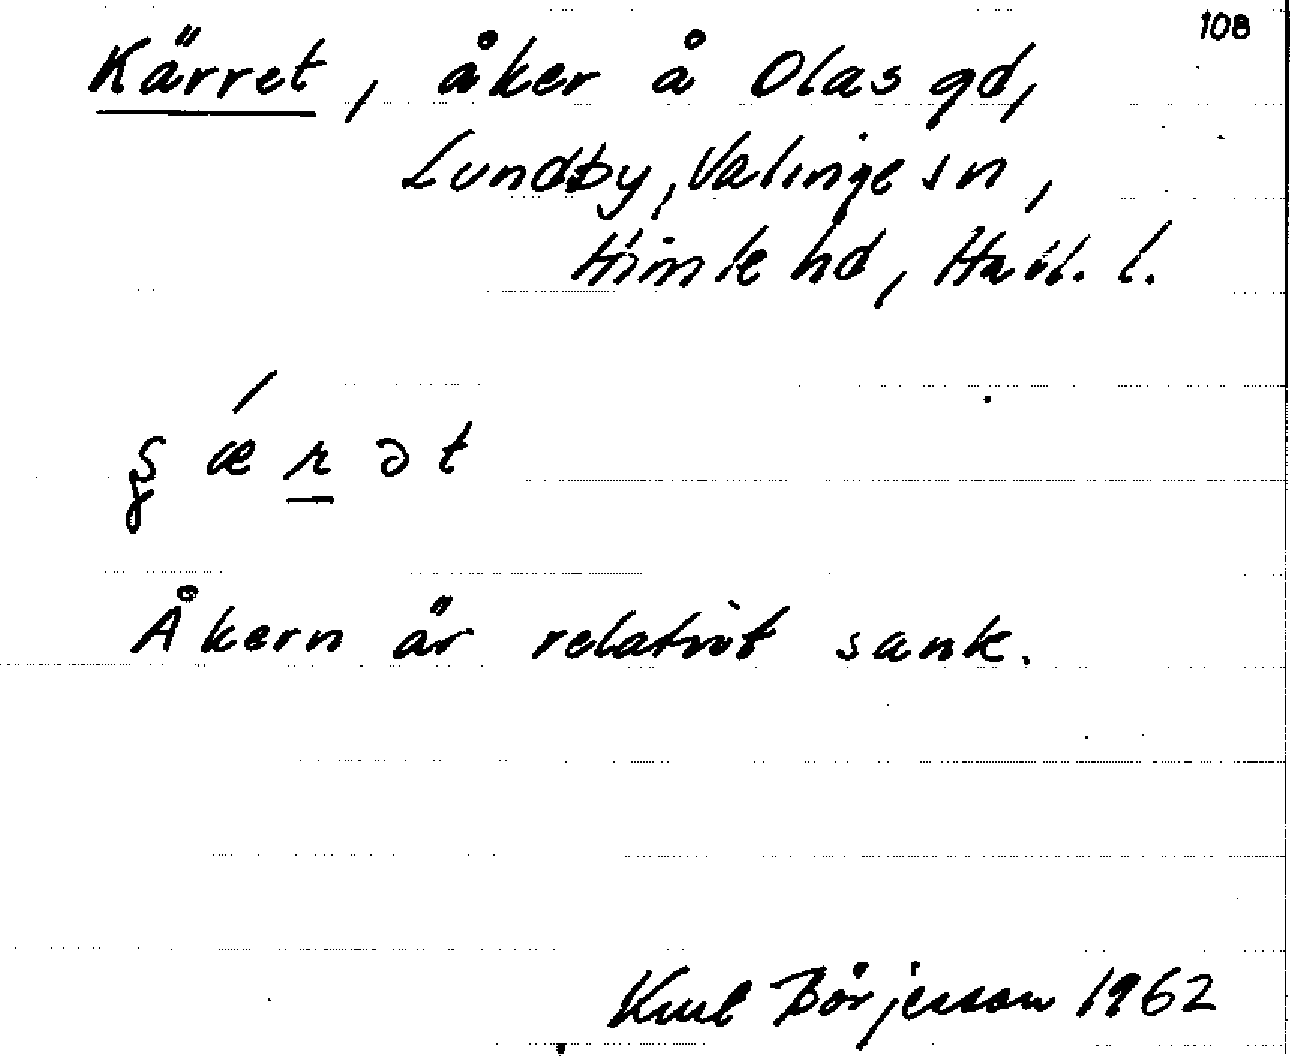 108
Kärret, åker å Olas gd,
Lundby, Valinge sn,
Himle hd, Hall. l.
Åkern är relativt sank.
Kurt Börjesson 1962